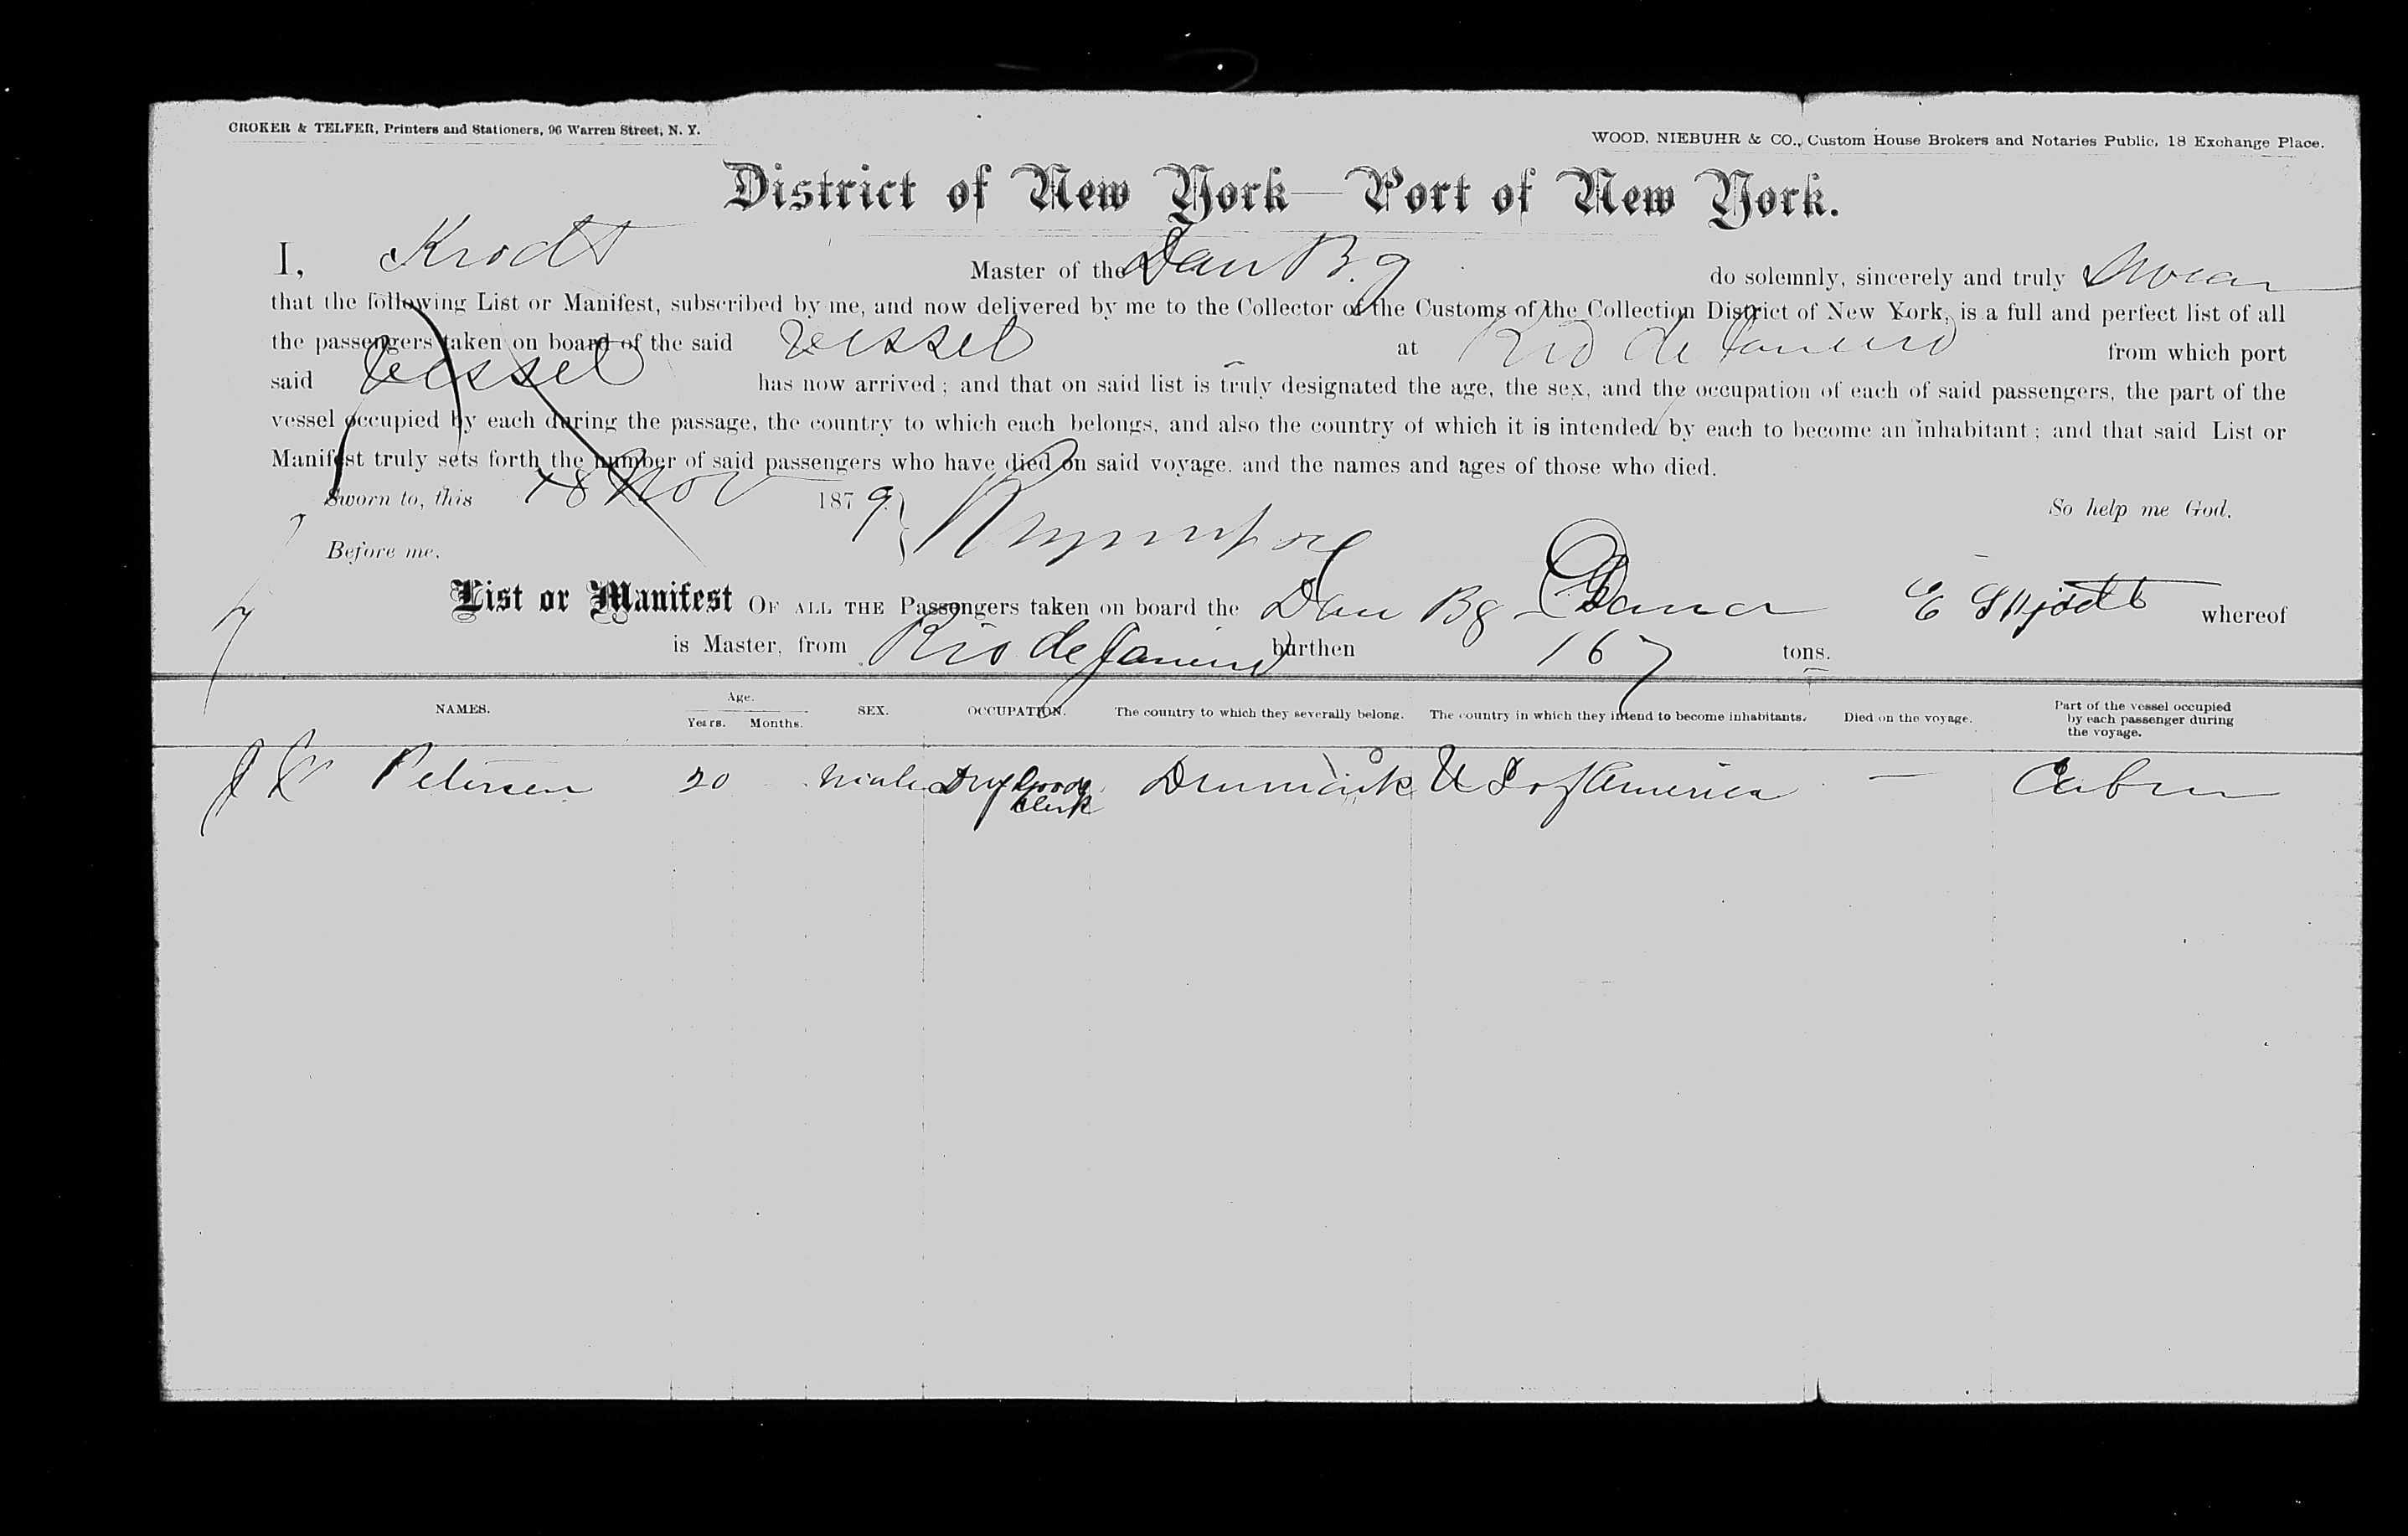 CROKER & TELFER, Printers and Stationers, 96 Warren Street, N. Y.
WOOD, NIEBUHR & CO., Custom House Brokers and Notaries Public, 18 Exchange Place.
District of New York—Port of New York.
I, Master of the Dan Bg do solemnly, sincerely and truly swear
that the following List or Manifest, subscribed by me, and now delivered by me to the Collector of the Customs of the Collection District of New York, is a full and perfect list of all
the passengers taken on board of the said vessel at Rio de Janeiro from which port
said vessel has now arrived; and that on said list is truly designated the age, the sex, and the occupation of each of said passengers, the part of the
vessel occupied by each during the passage, the country to which each belongs, and also the country of which it is intended by each to become an inhabitant; and that said List or
Manifest truly sets forth the number of said passengers who have died on said voyage, and the names and ages of those who died.
Sworn to, this Nov 1879 So help me God.
Before me,
List or Manifest OF ALL THE Passengers taken on board the Dan Bg Dana E Skjödt whereof
is Master, from Rio de Janeiro burthen 167 tons.
NAMES. Age. Years. Months. SEX. OCCUPATION. The country to which they severally belong. The country in which they intend to become inhabitants. Died on the voyage. Part of the vessel occupied by each passenger during the voyage.
Petersen 20 male Dry Goods Clerk U S of America — Cabin